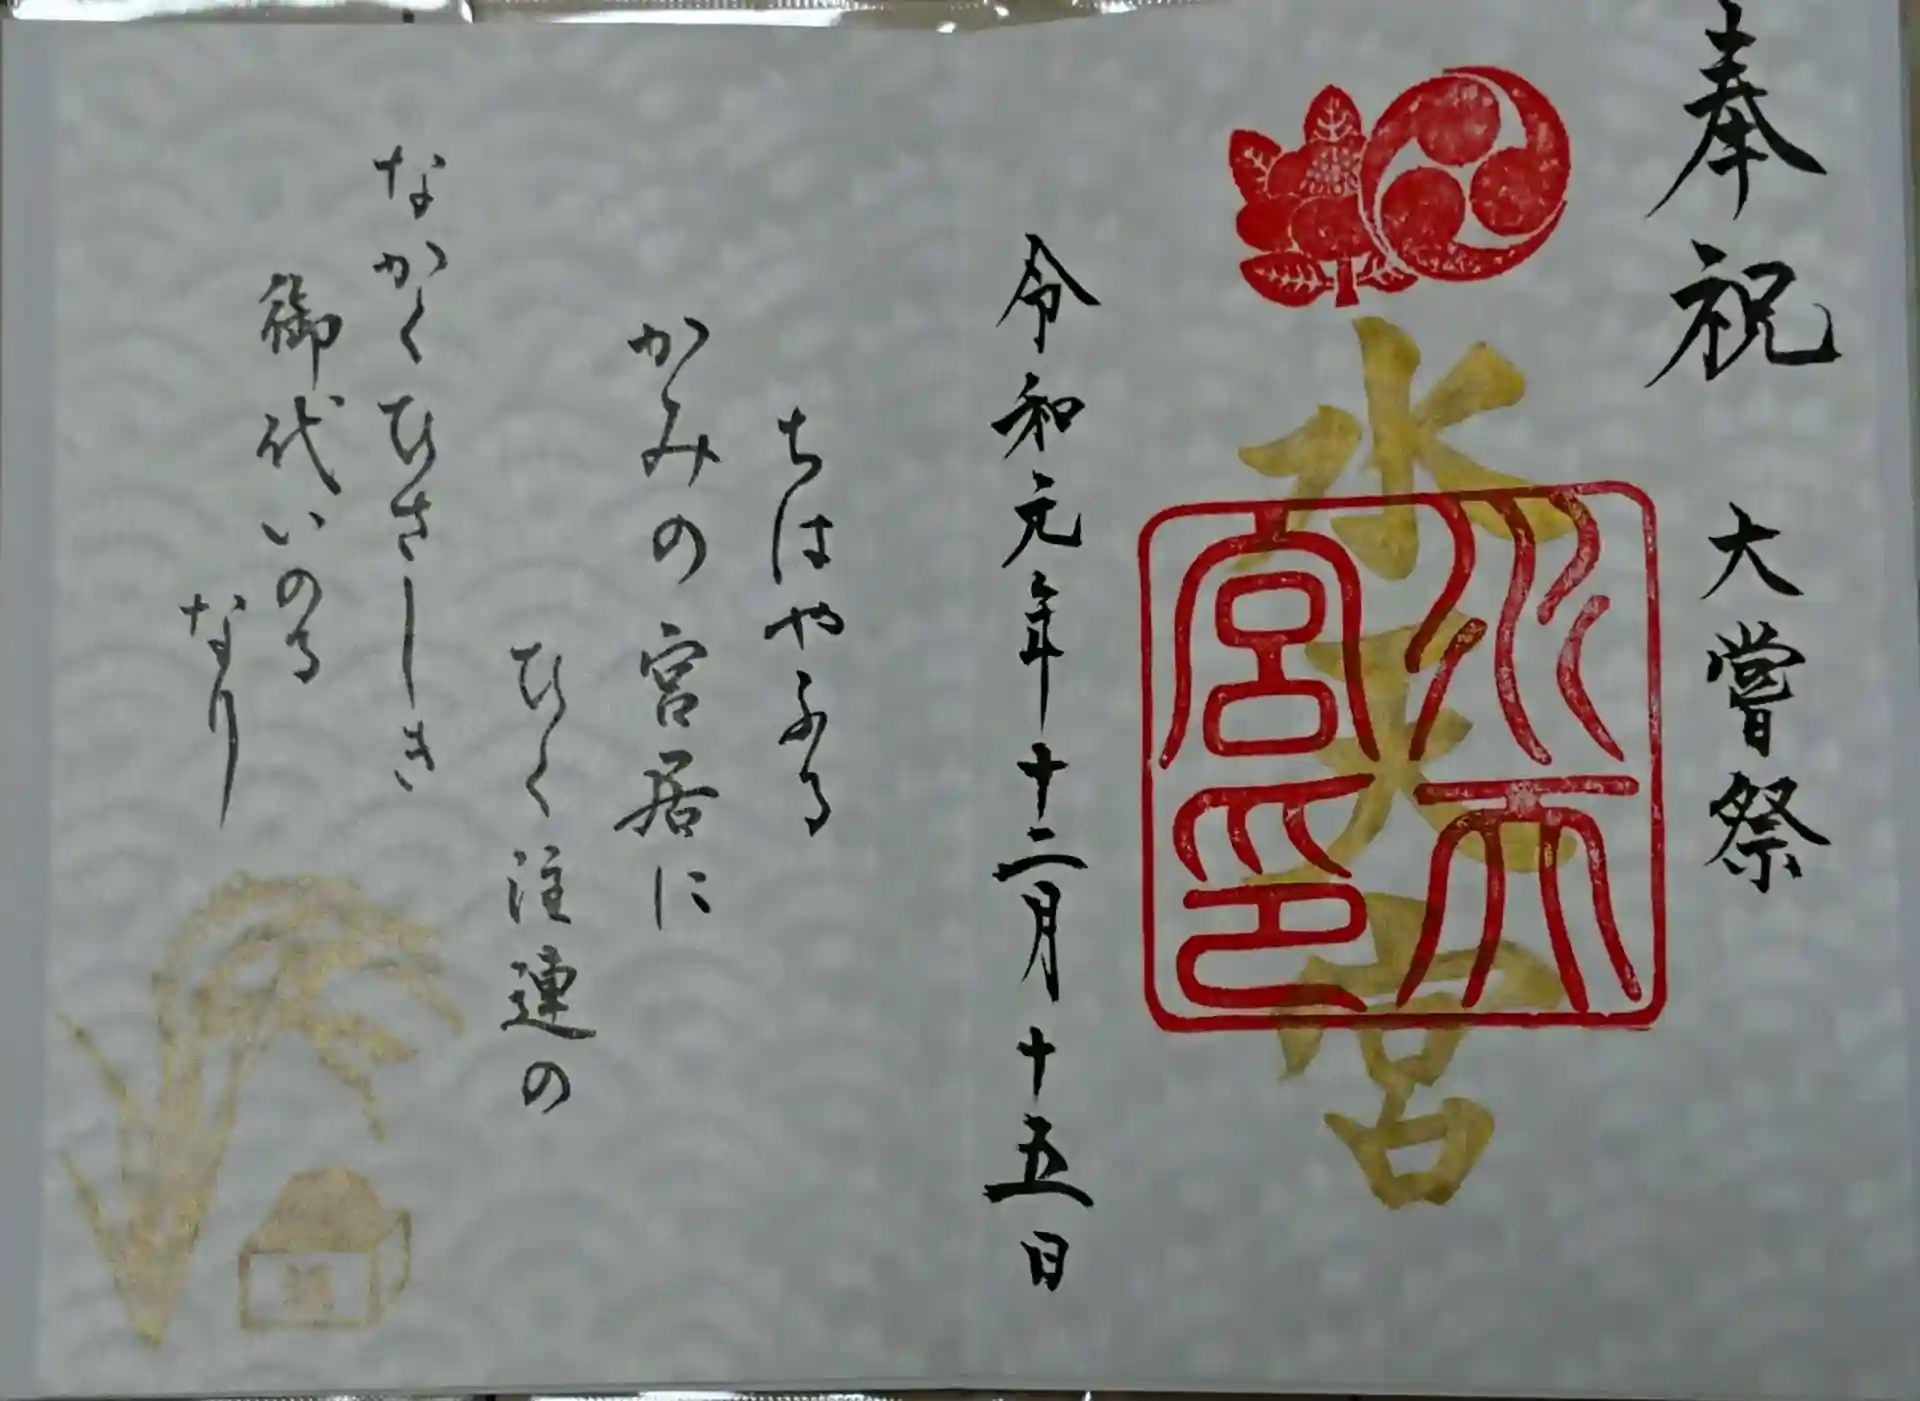 奉祝 大嘗祭
水天宮
水天宮印
令和元年十二月十五日
ちはやふる
かみの宮居に
ひく注連の
なかくひさしき
御代いのる
なり